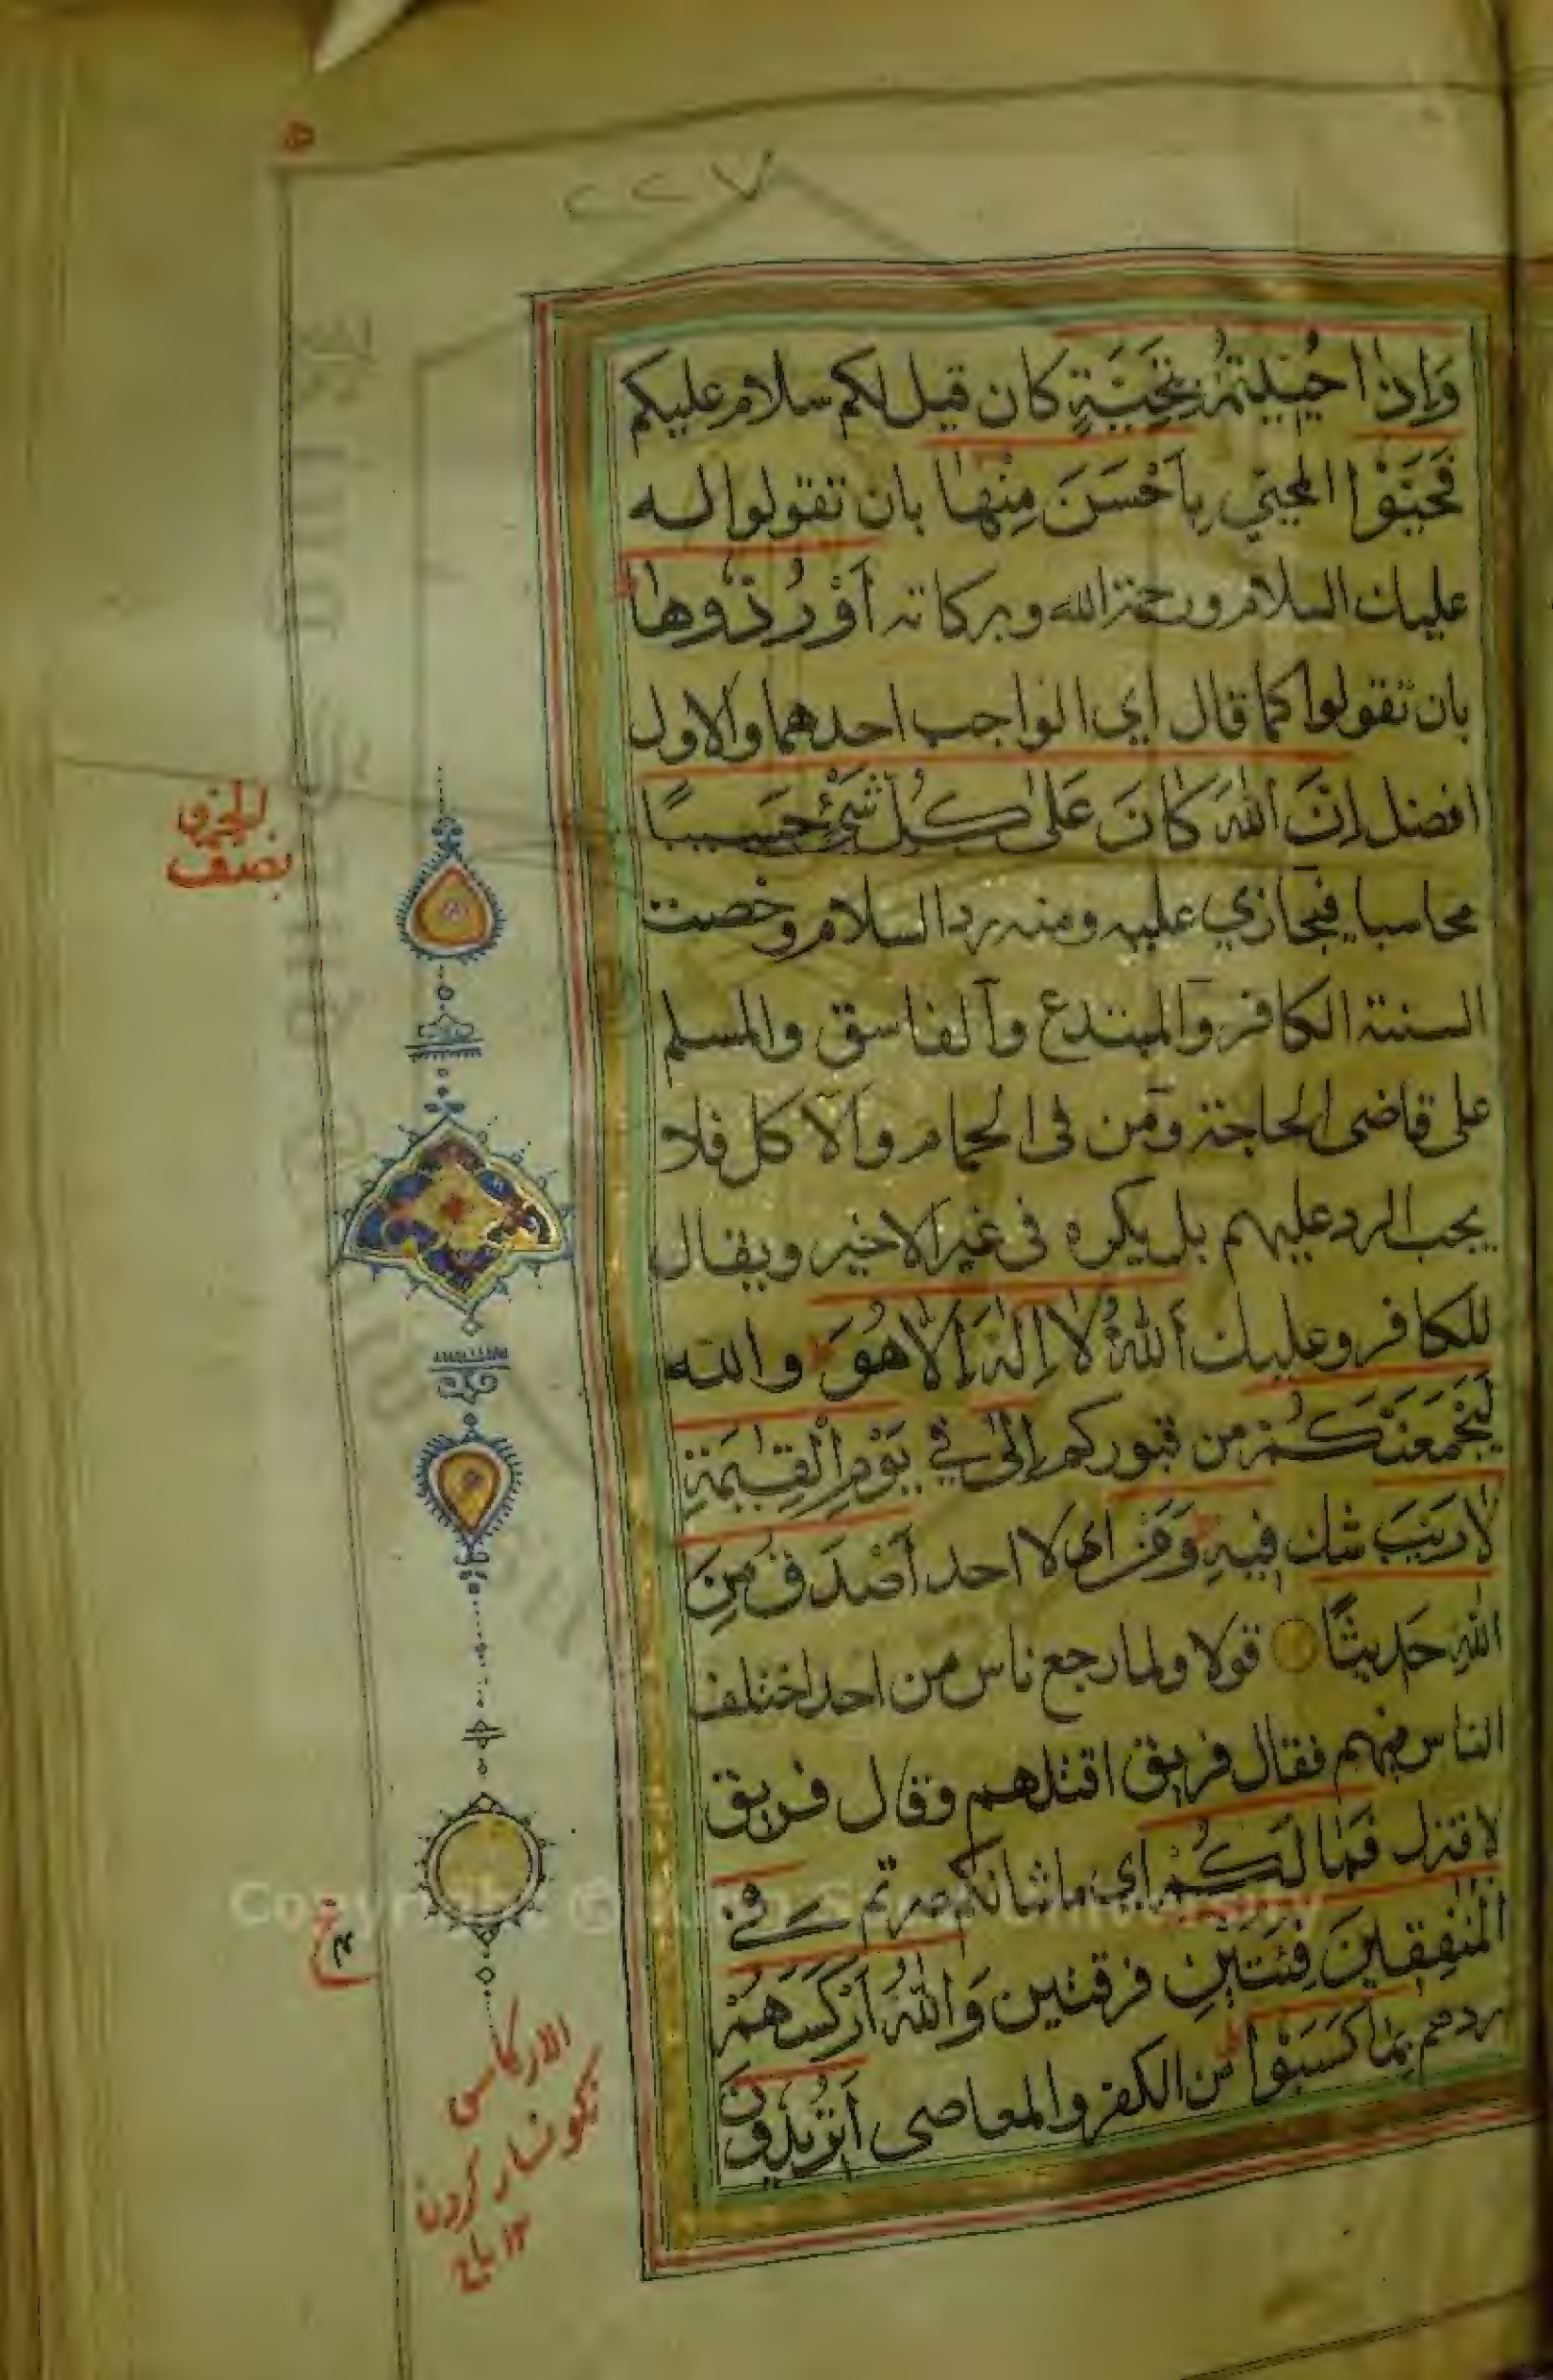 ٢٢٧
وَإِذَا حُيِّيتُمْ بِتَحِيَّةٍ كان قيل لكم سلام عليكم
فَحَيُّوْا المحيي بِأَحْسَنَ مِنْهَا بان تقولوا له
عليك السلام ورحمة الله وبركاته أَوْ رُدُّوهَا
بان تقولوا كما قال اي الواجب احدهما والاول
افضل إِنَّ اللَّهَ كَانَ عَلَى كُلِّ شَيْءٍ حَسِيبًا
محاسبا فيجازي عليه ومنه رد السلام وخصت
السنة الكافر والمبتدع والفاسق والمسلم
على قاضى الحاجة ومن فى الحمام والآكل فلا
يجب الرد عليهم بل يكره فى غير الاخير ويقال
للكافر وعليك اَللَّهُ لَا إِلَهَ إِلَّا هُوَ والله
لَيَجْمَعَنَّكُمْ من قبوركم إِلَى في يَوْمِ الْقِيمَةِ
لَا رَيْبَ شك فِيهِ وَمَنْ اى لا احد أَصْدَقُ مِنَ
اللَّهِ حَدِيثًا قولا ولما رجع ناس من احد اختلف
الناس فيهم فقال فريق اقتلهم وقال فريق
لا فنزل فَمَا لَكُمْ اي ما شانكم صرتم فِي
الْمُنَفِقِينَ فِئَتَيْنِ فرقتين وَاللَّهُ أَرْكَسَهُمْ
ردهم بِمَا كَسَبُوْا من الكفر والمعاصى أَتُرِيدُونَ
نصف
الاركاس
نكونسار كردن
١٢ تاج